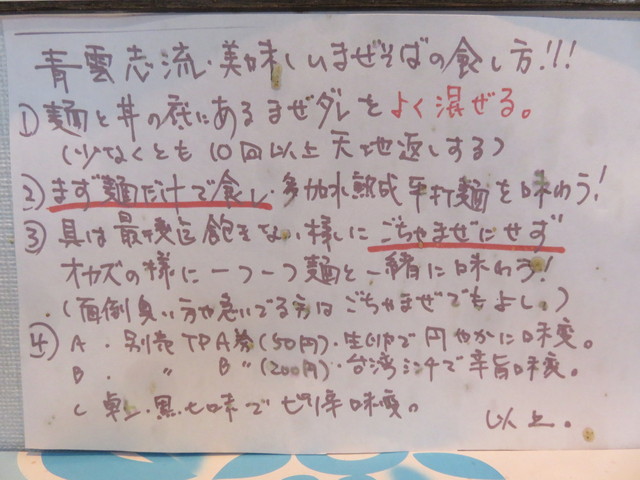 青雲志流・美味しいまぜそばの食し方!!!
① 麺と丼の底にあるまぜダレをよく混ぜる。
(少なくとも10回以上天地返しする)
② まず麺だけで食し・多加水熟成平打麺を味わう!
③ 具は最後迄飽きない様に ごちゃまぜにせず
オカズの様に一つ一つ麺と一緒に味わう!
(面倒臭い方や急いでる方はごちゃまぜでもよし。)
④ A・別売TP A券(50円)・生卵で円やかに味変。
B・〃 B〃(200円)・台湾ミンチで辛旨味変。
C 卓上・黒七味でピリ辛味変。
以上。